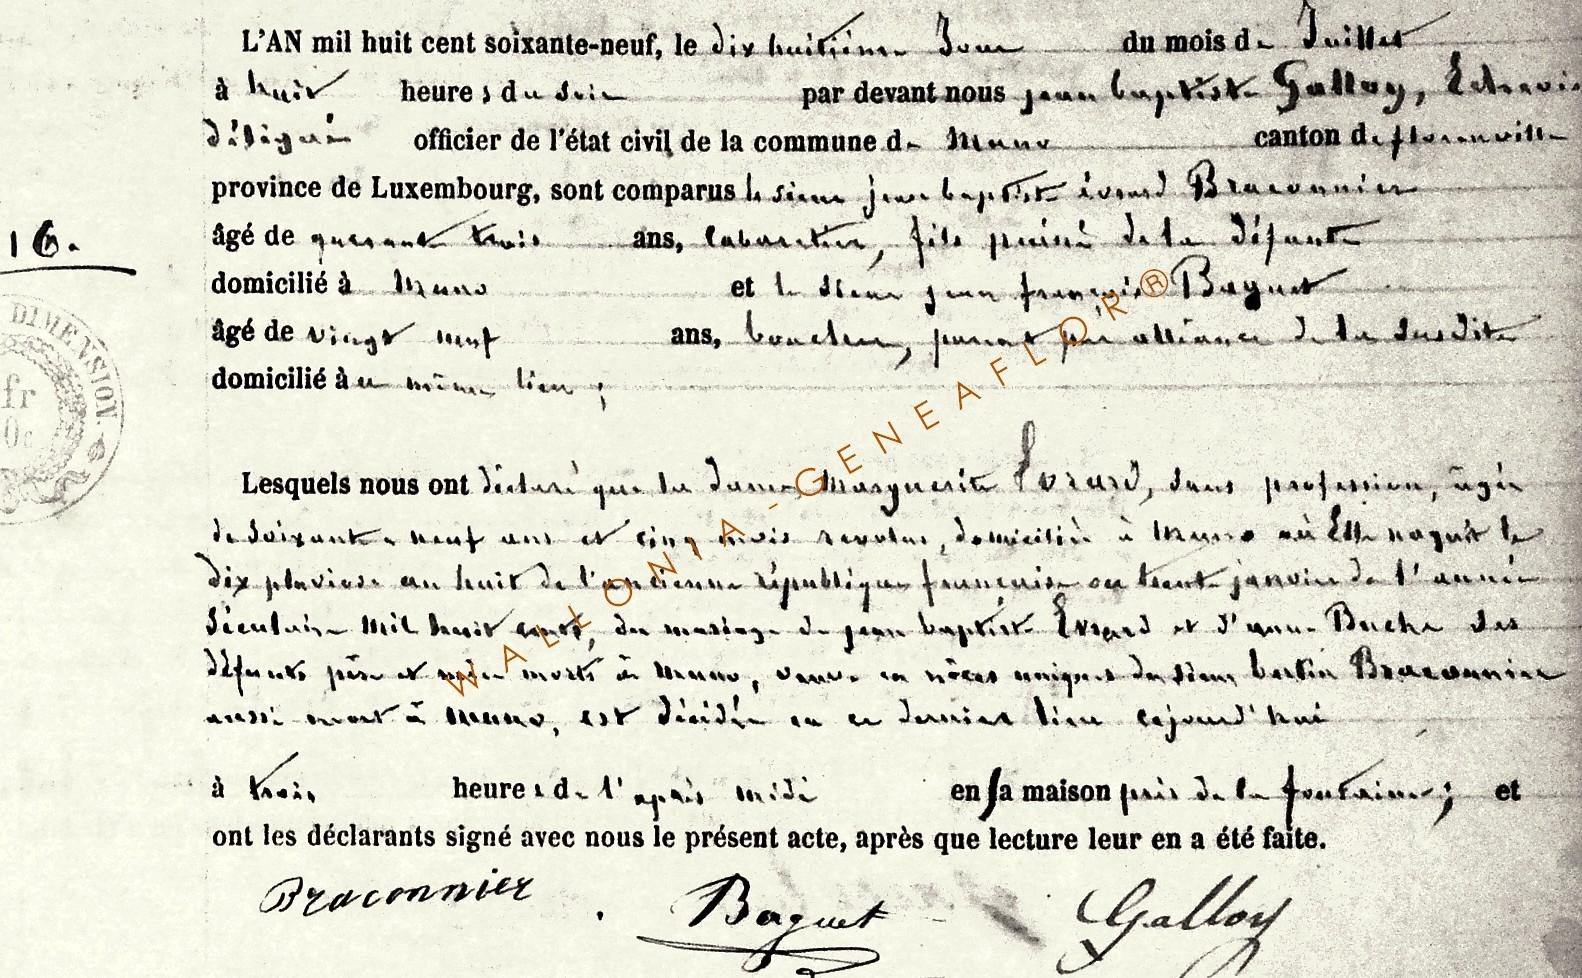 L'AN mil huit cent soixante-neuf, le dix huitième Jour du mois de Juillet
à huit heures du soir par devant nous jean baptiste Galloy, Echevin
délégué officier de l'état civil de la commune de Muno canton de florenville
province de Luxembourg, sont comparus le sieur jean baptiste évrard Braconnier
16. âgé de quarante trois ans, cabaretier, fils puiné de la défunte
domicilié à Muno et le sieur jean françois Baguet
âgé de vingt neuf ans, boucher, parent par alliance de la susdite
domicilié au même lieu ;
DIMENSION.
fr
Lesquels nous ont déclaré que la dame Marguerite Evrard, sans profession, âgée
de soixante neuf ans et cinq mois révolus, domiciliée à Muno où Elle naquit le
dix pluviose an huit de l'ancienne république française ou trente janvier de l'année
séculaire Mil huit cents, du mariage de jean baptiste Evrard et d'anne Buche ses
défunts père et mère morts à Muno, veuve en nôces uniques du sieur bertin Braconnier
aussi mort à Muno, est décédée en ce dernier lieu cejourd'hui
à trois heures de l'après midi en sa maison près de la fontaine ; et
ont les déclarants signé avec nous le présent acte, après que lecture leur en a été faite.
Braconnier Baguet Galloy
WALLONIA-GENEAFLOR®